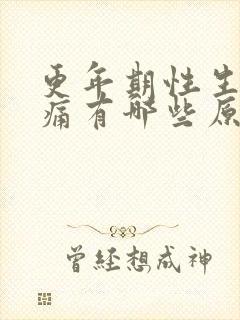 更年期性生
痛有哪些原
曾经想成神